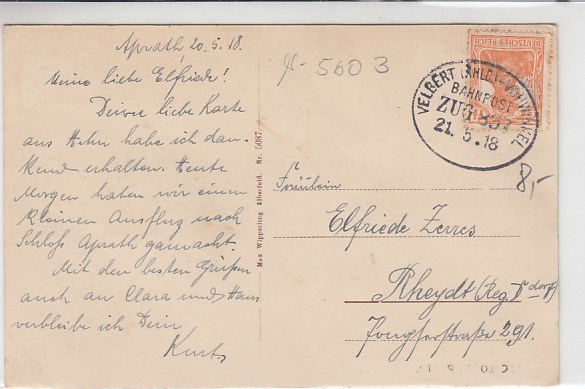 Aprath, 20.5.18.
Meine liebe Elfriede!
Deine liebe Karte
aus Hahn habe ich dan-
kend erhalten. Heute
Morgen haben wir einen
kleinen Ausflug nach
Schloß Aprath gemacht.
Mit den besten Grüßen
auch an Clara und Hans
verbleibe ich Dein
Kurt
5603
Max Wippenling Elberfeld. Nr. 5087.
DEUTSCHES REICH
VELBERT (RHLD)-VOHWINKEL
BAHNPOST
ZUG
21.5.18
8,-
Fräulein
Elfriede Zerres
Rheydt (Reg. Ddorf)
291.